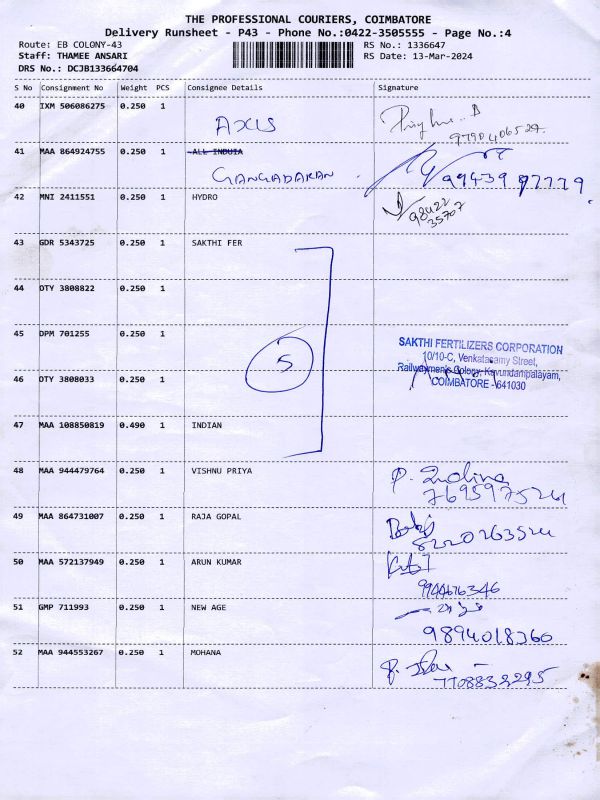 THE PROFESSIONAL COURIERS, COIMBATORE
Delivery Runsheet - P43 - Phone No.:0422-3505555 - Page No.:4
Route: EB COLONY-43 RS No.: 1336647
Staff: THAMEE ANSARI RS Date: 13-Mar-2024
DRS No.: DCJB133664704
S No Consignment No Weight PCS Consignee Details Signature
40 IXM 506086275 0.250 1
AXIS
9790406529
41 MAA 864924755 0.250 1 ALL INDUIA
GANGADARAN 99439 97779
42 MNI 2411551 0.250 1 HYDRO
98422
35707
43 GDR 5343725 0.250 1 SAKTHI FER
44 DTY 3808822 0.250 1
45 DPM 701255 0.250 1
5
SAKTHI FERTILIZERS CORPORATION
10/10-C, Venkatasamy Street,
Railwaymens Colony, Kavundampalayam,
COIMBATORE - 641030
46 DTY 3808033 0.250 1
47 MAA 108850819 0.490 1 INDIAN
48 MAA 944479764 0.250 1 VISHNU PRIYA
7695975211
49 MAA 864731007 0.250 1 RAJA GOPAL
8220263524
50 MAA 572137949 0.250 1 ARUN KUMAR
9944676346
51 GMP 711993 0.250 1 NEW AGE
9894018360
52 MAA 944553267 0.250 1 MOHANA
7708833295